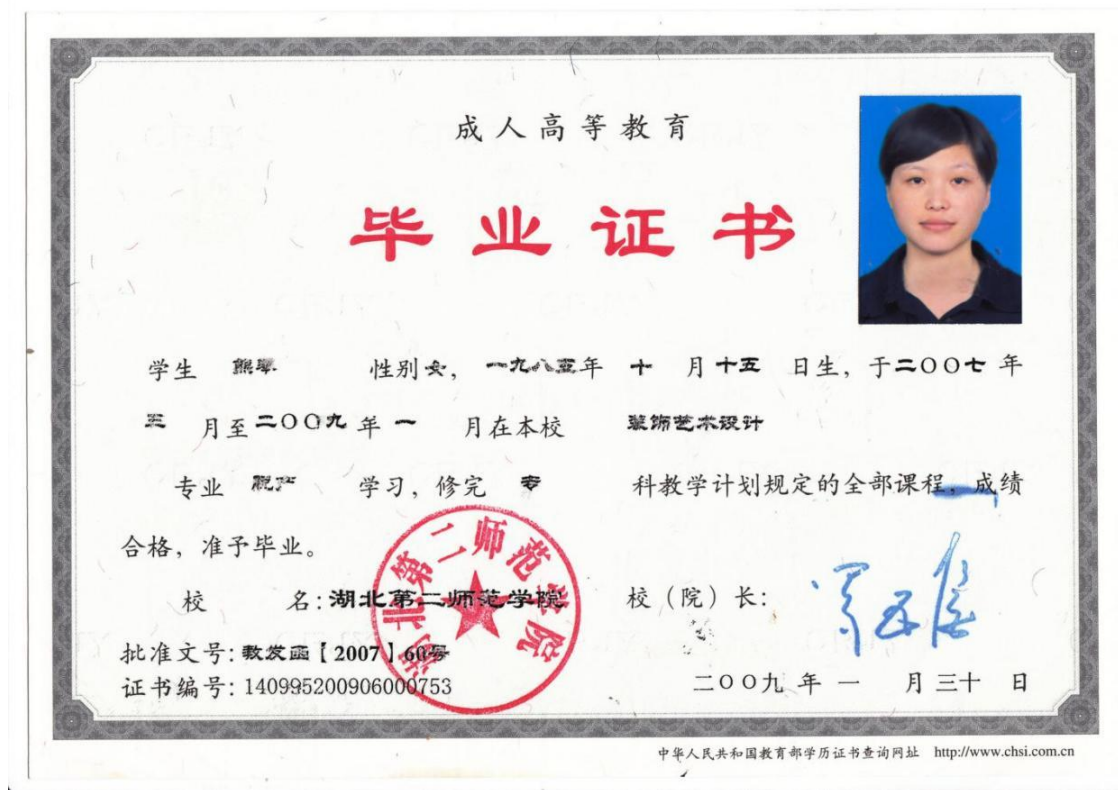 成人高等教育
毕业证书
学生 熊翠 性别女, 一九八五年 十 月十五 日生, 于二〇〇七 年
三 月至二〇〇九 年 一 月在本校 装饰艺术设计
专业 脱产 学习, 修完 专 科教学计划规定的全部课程, 成绩
合格, 准予毕业。
校 名:湖北第二师范学院 校(院)长:
湖北第二师范学院
批准文号:教发函【2007】60号
证书编号:140995200906000753 二〇〇九 年 一 月三十 日
中华人民共和国教育部学历证书查询网址 http://www.chsi.com.cn